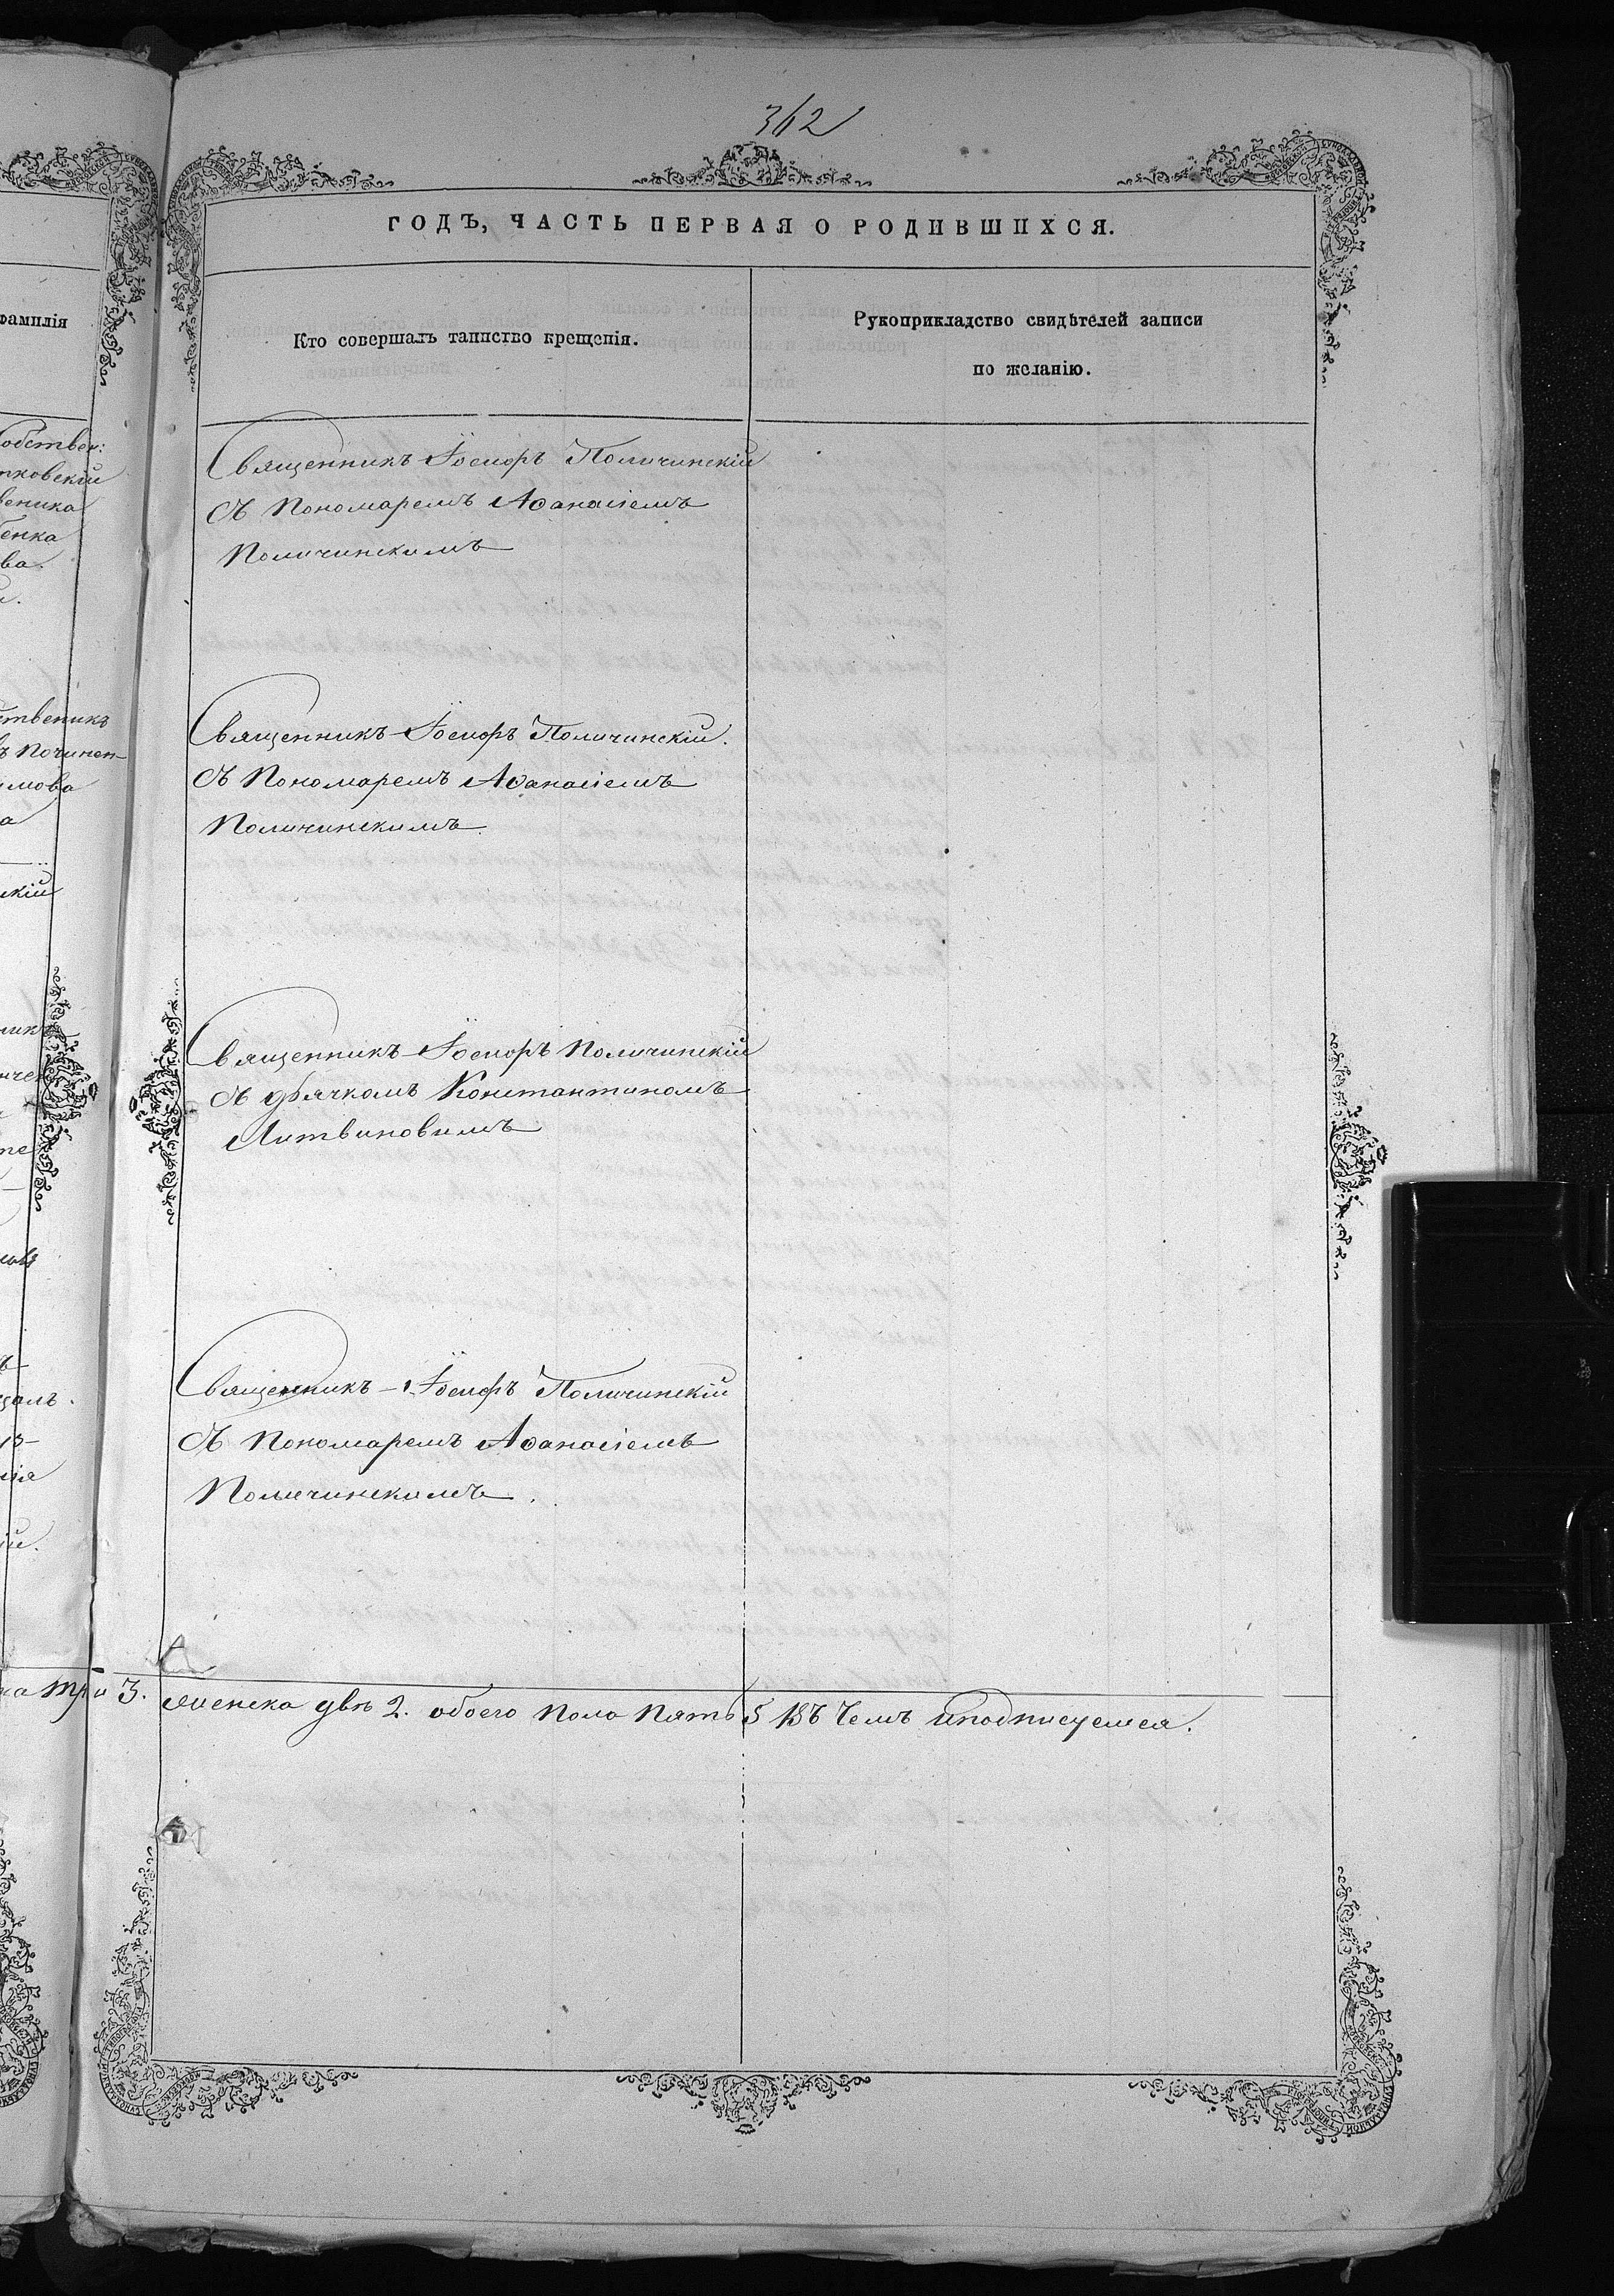 362
ГОДЪ, ЧАСТЬ ПЕРВАЯ О РОДИВШИХСЯ.
фамилія
Кто совершалъ таинство крещенія.
Рукоприкладство свидѣтелей записи
по желанію.
Священникъ Іосифъ Поличинскій
съ Пономаремъ Аѳанасіемъ
Поличинскимъ
Священникъ Іосифъ Поличинскій.
съ Пономаремъ Аѳанасіемъ
Поличинскимъ.
Священникъ Іосифъ Поличинскій
съ дьячкомъ Константиномъ
Литвиновимъ
Священникъ - Іосифъ Поличинскій
съ Пономаремъ Аѳанасіемъ
Поличинскимъ.
три 3. женска двѣ 2. обоего пола пять 5 въ чемъ иподписуемся.